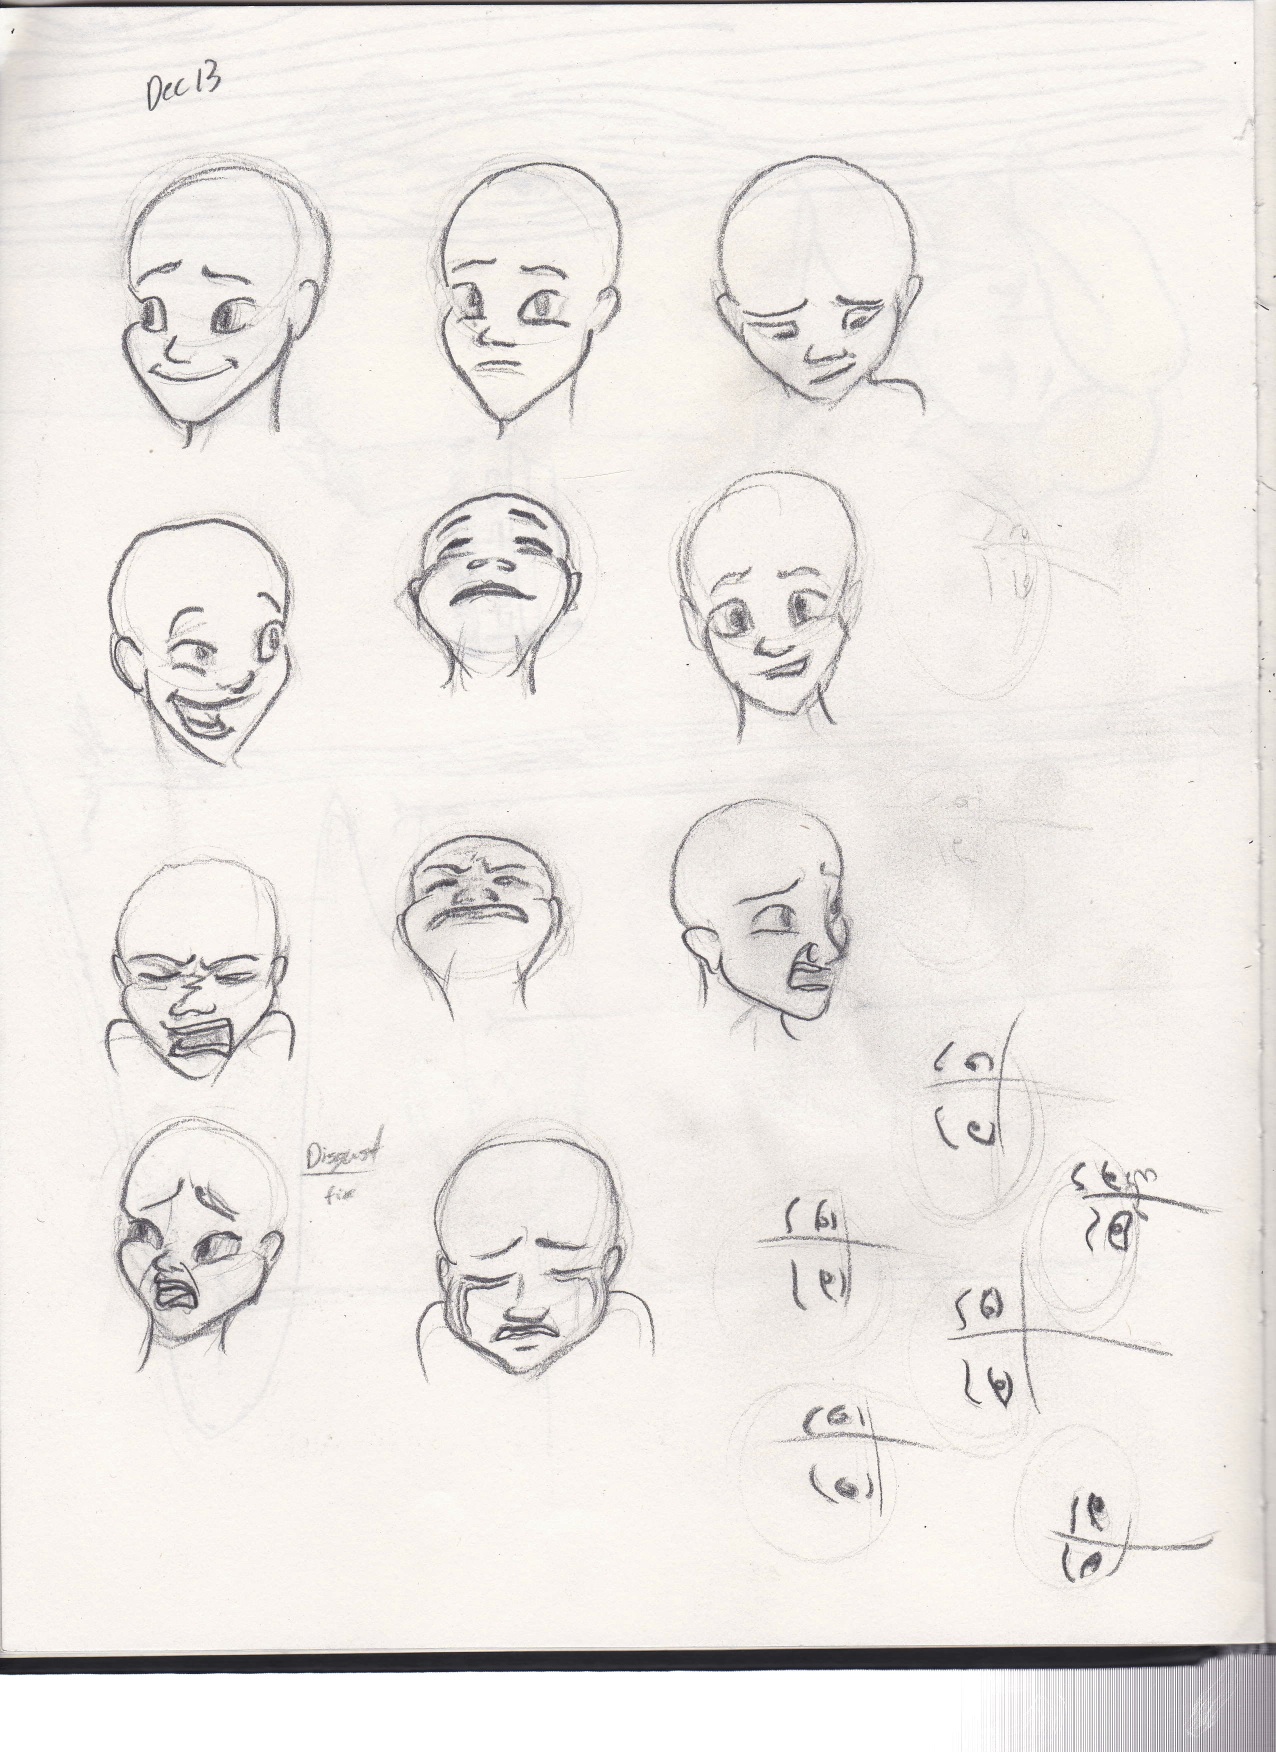 Dec 13
Disgust
fix